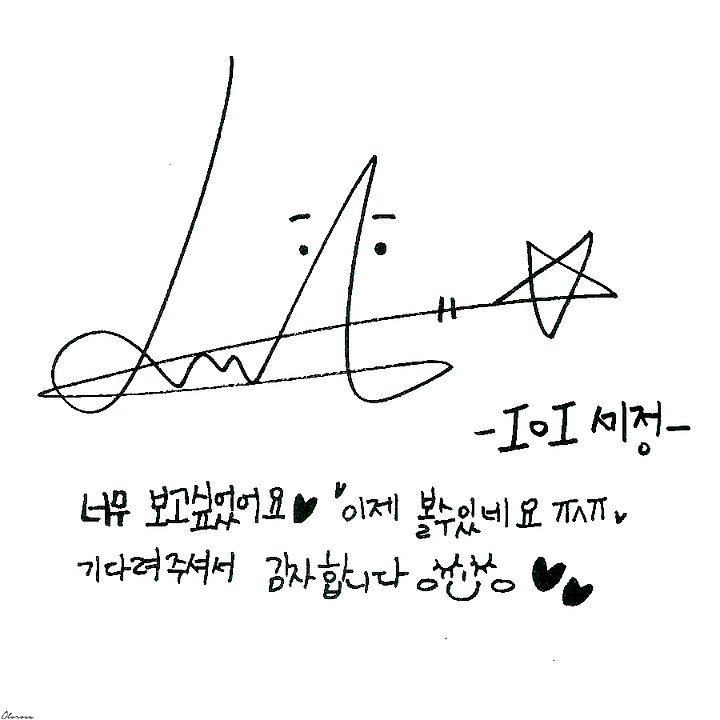 -IOI 세정-
너무 보고싶었어요♥ ♥이제 볼수있네요 ㅠㅅㅠ♥
기다려주셔서 감사합니다 ♥♥